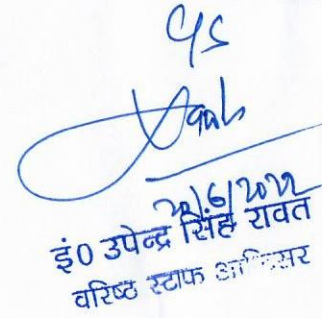 20/6/2022
इं0 उपेन्द्र सिंह रावत
वरिष्ठ स्टाफ आफिसर